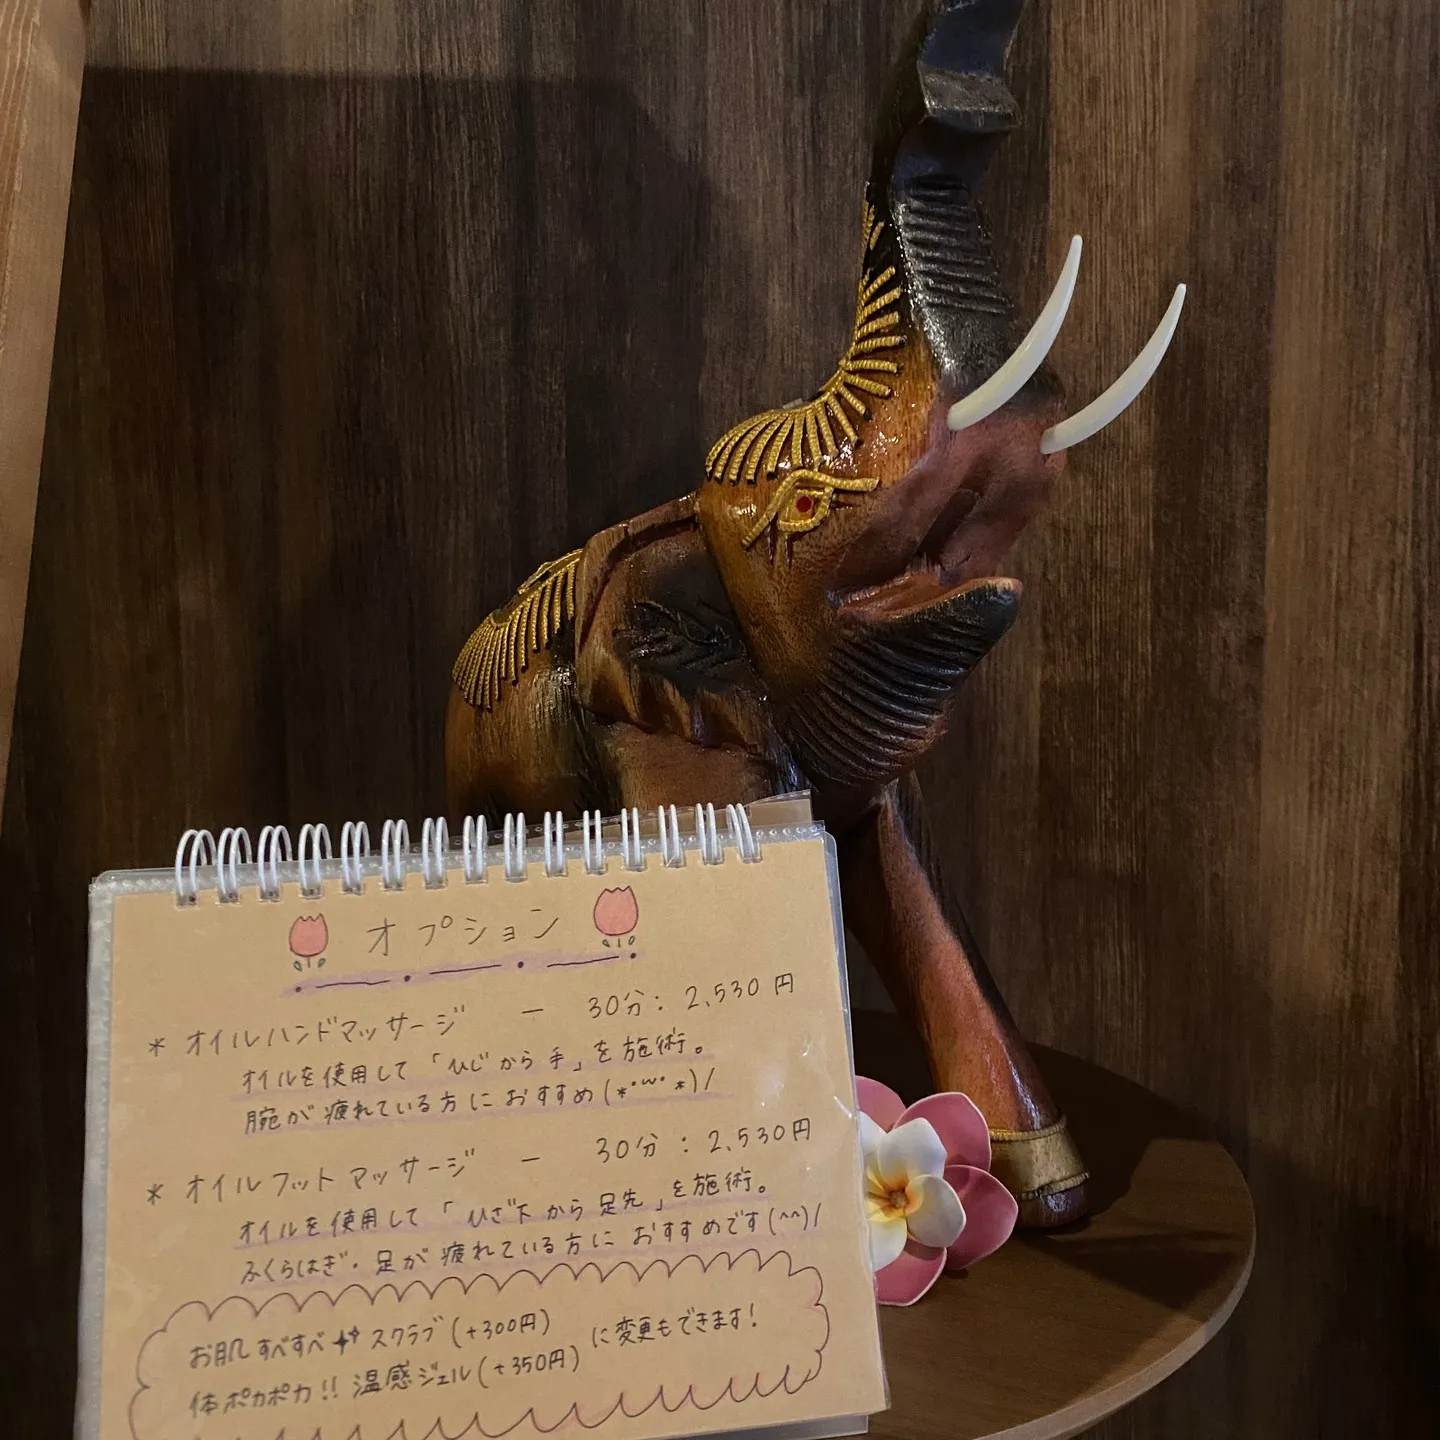 オプション
* オイルハンドマッサージ ー 30分: 2,530円
オイルを使用して「ひじから手」を施術。
腕が疲れている方におすすめ(*'ω'*)/
* オイルフットマッサージ ー 30分:2,530円
オイルを使用して「ひざ下から足先」を施術。
ふくらはぎ・足が疲れている方におすすめです(^^)/
お肌すべすべ スクラブ(+300円)
体ポカポカ!! 温感ジェル(+350円) に変更もできます!